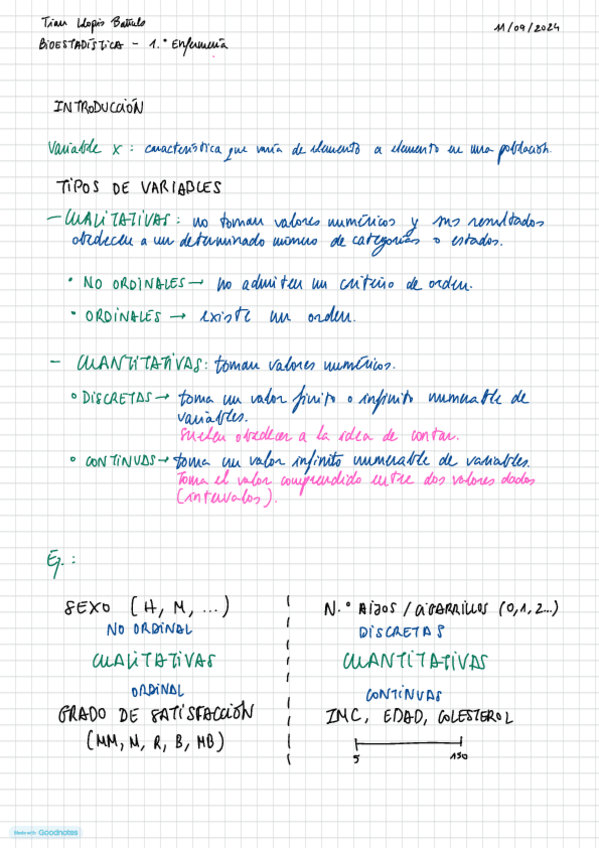 Bioestadística - 1.º Enfermería
11/09/2024
INTRODUCCIÓN
Variable X: característica que varía de elemento a elemento en una población.
TIPOS DE VARIABLES
- CUALITATIVAS: no toman valores numéricos y sus resultados
obedecen a un determinado número de categorías o estados.
• NO ORDINALES → no admiten un criterio de orden.
• ORDINALES → existe un orden.
- CUANTITATIVAS: toman valores numéricos.
• DISCRETAS → toma un valor finito o infinito numerable de
variables.
Suelen obedecer a la idea de contar.
• CONTINUAS → toma un valor infinito numerable de variables.
Toma el valor comprendido entre dos valores dados
(intervalos).
Ej.:
SEXO (H, M, ...)
NO ORDINAL
CUALITATIVAS
ORDINAL
GRADO DE SATISFACCIÓN
(MM, M, R, B, MB)
N.º HIJOS / CIGARRILLOS (0,1,2...)
DISCRETAS
CUANTITATIVAS
CONTINUAS
IMC, EDAD, COLESTEROL
5 150
Made with Goodnotes